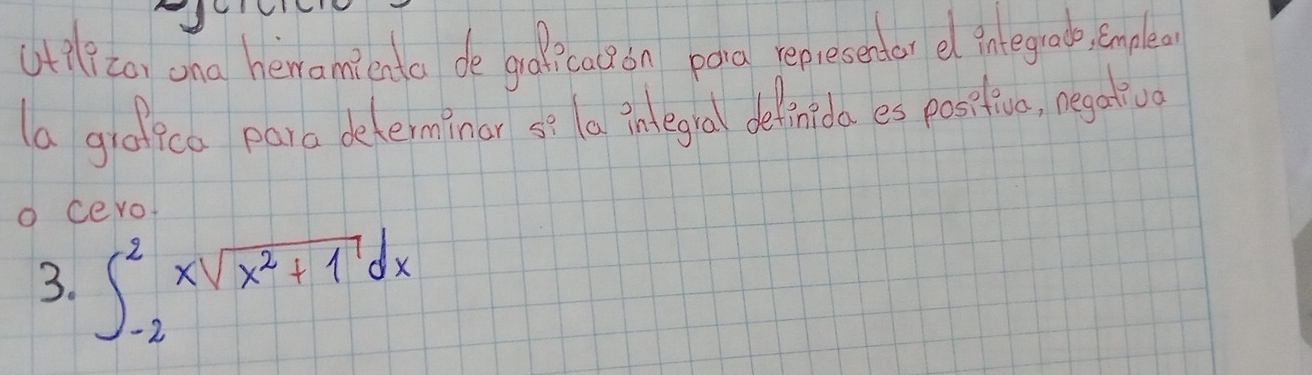 Utilizar una herramienta de graficación para representar el integrado, Emplear
la grafica para determinar si la integral definida es positiva, negativa
o cero.
3. ∫_{-2}^{2} x√(x² + 1) dx